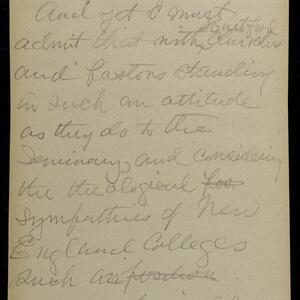 And yet I must
Hartford
admit that with ministers
and Pastors standing
in such an attitude
as they do to the
Seminary, and considering
the theological
sympathies of New
England Colleges
such